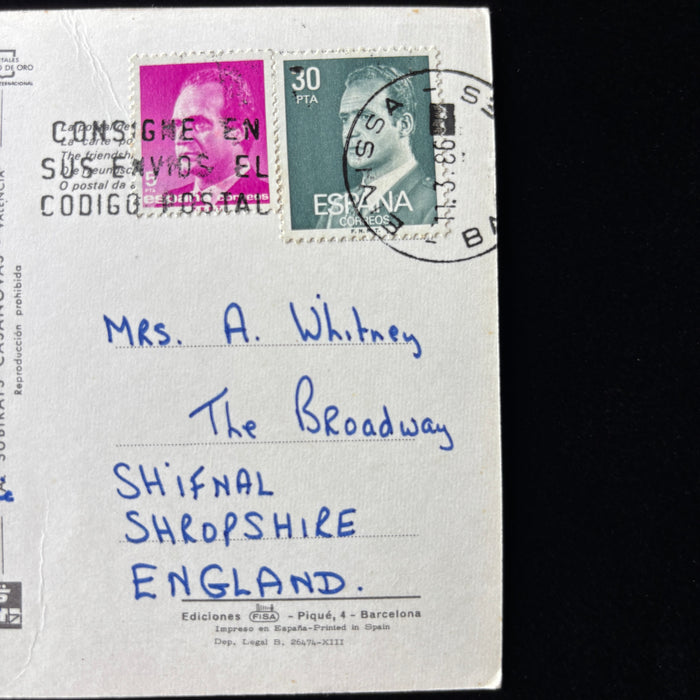 TALES
DE ORO
INTERNACIONAL
CONSIGNE EN
SUS ENVIOS EL
CODIGO POSTAL
La carte
The friendshi
O postal da a
5
PTA
españa correos
30
PTA
ESPAÑA
CORREOS
F.N.M.T.
SUBIRATS CASANOVAS VALENCIA
Reproducción prohibida
MRS. A. Whitney
The Broadway
SHIFNAL
SHROPSHIRE
ENGLAND.
Ediciones FISA - Piqué, 4 - Barcelona
Impreso en España-Printed in Spain
Dep. Legal B. 26474-XIII